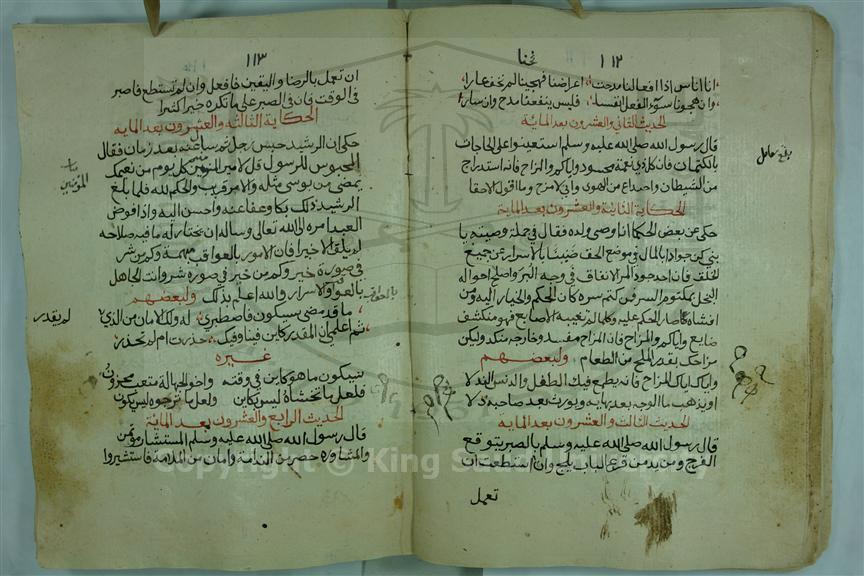 ١١٢
انا اناس اذا افعالنا مدحت اعراضنا فهجينا لم تخف عارا
وان هجونا بسوء الفعل انفسنا فليس ينفعنا مدح وان سارا
الحديث الثاني والعشرون بعد الماية
قال رسول الله صلى الله عليه وسلم استعينوا على الحاجات
بالكتمان فان كل ذي نعمة محسود واياكم والمزاح فانه استدراج
من الشيطان واختداع من الهوى واني لامزح وما اقول الا حقا
الحكاية الثانية والعشرون بعد الماية
حكى عن بعض الحكما انه اوصى ولده فقال في جملة وصيته يا
بني كن جوادا بالمال في موضع الحق ضنينا بالاسرار عن جميع
الخلق فان احد جود المرء الانفاق في وجه البر واصلح احواله
البخل بمكتوم السر فمن كتم سره كان الحكم والخيار اليه ومن
افشاه كان الحكم عليه وكلما لم تغيبه الاصابع فهو منكشف
ضايع واياكم والمزاح فان المزاح مفسد وخارجة منك وليكن
مزاحك بقدر الملح من الطعام ولبعضهم
واياك اياك المزاح فانه يطمع فيك الطفل والدنس النذلا
او يذهب ما الوجه بعد بهايه ويورث بعد صاحبه ذلا
الحديث الثالث والعشرون بعد الماية
قال رسول الله صلى الله عليه وسلم بالصبر يتوقع
الفرج ومن يدمن قرع الباب يلج وان استطعت ان
تعمل
١١٣
ان تعمل بالرضا واليقين فافعل وان لم تستطع فاصبر
في الوقت فان في الصبر على ما تكره خيرا كثيرا
الحكاية الثالثة والعشرون بعد الماية
حكى ان الرشيد حبس رجلا ثم سال عنه بعد زمان فقال
المحبوس للرسول قل لامير المومنين كل يوم من نعيمك
يمضي من بوسي مثله والامر قريب والحكم لله فلما بلغ
الرشيد ذلك بكا وعفا عنه واحسن اليه واذا فوض
العبد امره الى الله تعالى وساله ان يختار له ما فيه صلاحه
لم يلق الا خيرا فان الامور بالعواقب مبهمة وكم من شر
في صورة خير وكم من خير في صورة شر وانت الجاهل
بالعواقب والاسرار والله اعلم بذلك ولبعضهم
ما قد مضى سيكون فاصطبري له ولك الامان من الذي لا
ثم اعلمي ان المقدر كاين فينا وفيك حذرت ام لم تحذر
غيره
سيكون ما هو كاين في وقته واخو الجهالة متعب محزون
فلعل ما تخشاه ليس بكاين ولعل ما ترجوه ليس يكون
الحديث الرابع والعشرون بعد الماية
قال رسول الله صلى الله عليه وسلم المستشار موتمن
والمشاورة حصن من الندامة وامان من الملامة فاستشيروا
المومنين
بالعواقب
لم يقدر
Copyright © King Saud University